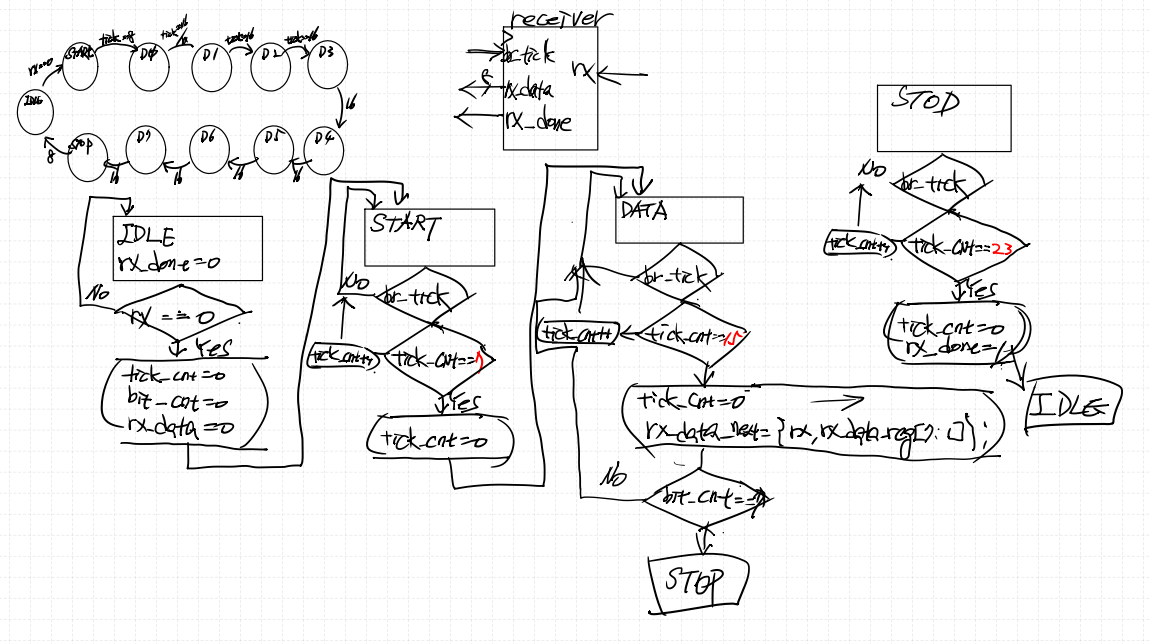 IDLE
rx==0
START
tick=8
D0
tick=16
D1
tick=16
D2
tick=16
D3
16
D4
16
D5
16
D6
16
D7
16
STOP
8
receiver
br_tick
8
rx_data
rx_done
rx
IDLE
rx_done=0
No
rx ==0
Yes
tick_cnt=0
bit_cnt=0
rx_data=0
START
No
br_tick
tick_cnt++
tick_cnt==7
Yes
tick_cnt=0
DATA
br_tick
tick_cnt++
tick_cnt==15
tick_cnt=0
rx_data_next={rx,rx_data_reg[7:1]};
No
bit_cnt==7
STOP
STOP
No
br_tick
tick_cnt++
tick_cnt==23
Yes
tick_cnt=0
rx_done=1
IDLE